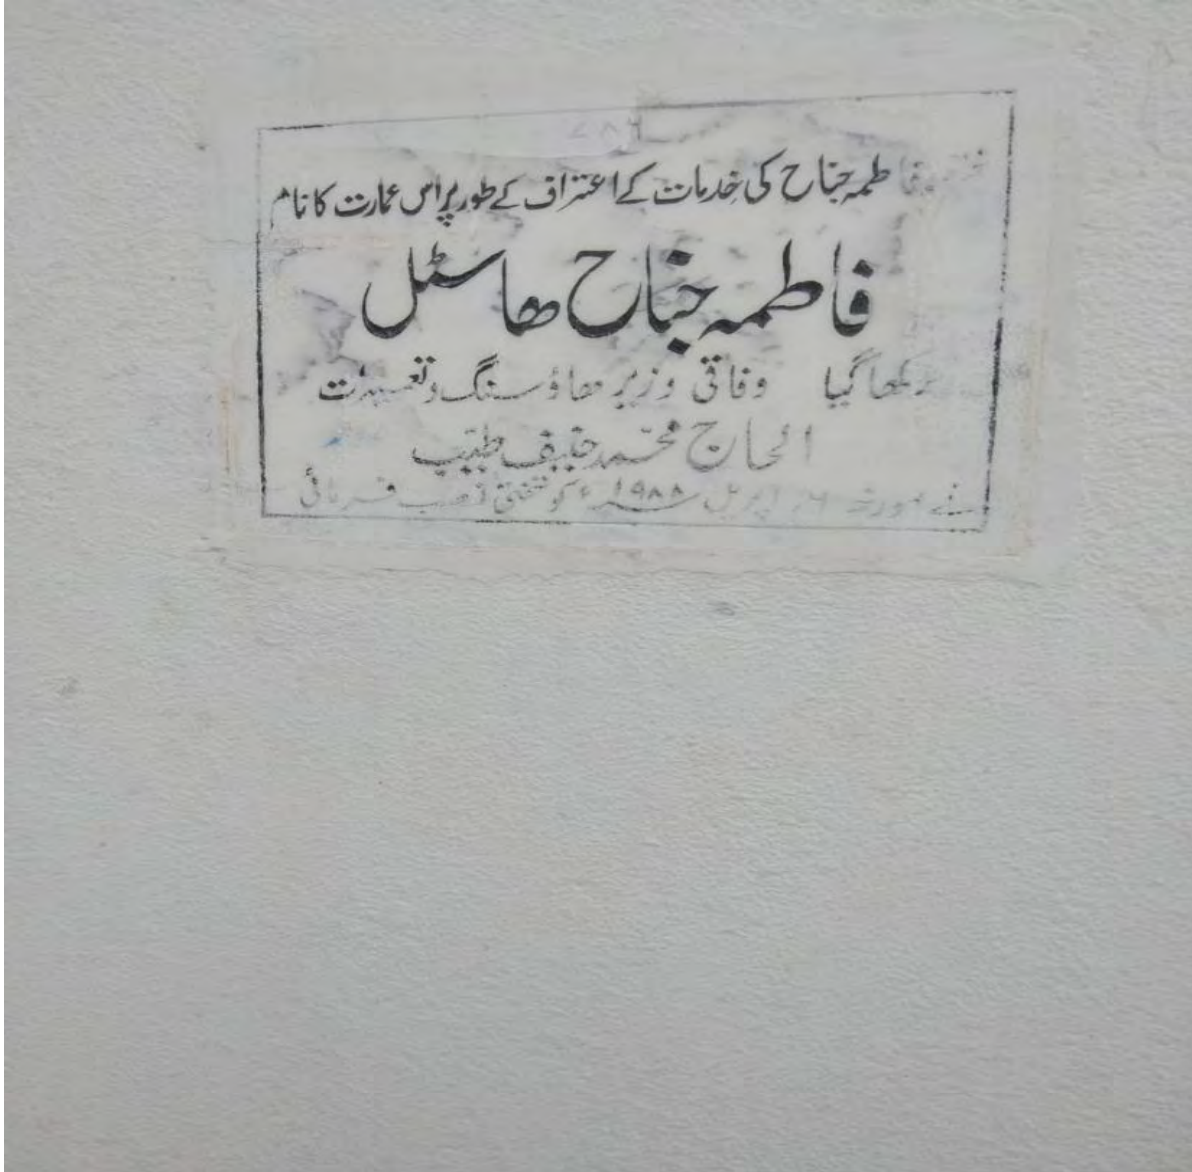 ۷۸۶
فاطمہ جناح کی خدمات کے اعتراف کے طور پر اس عمارت کا نام
فاطمہ جناح ھاسٹل
رکھا گیا وفاقی وزیر ھاؤسنگ و تعمیرات
الحاج محمد حنیف طیب
نے مورخہ اپریل ۱۹۸۸ء کو تختی نصب فرمائی